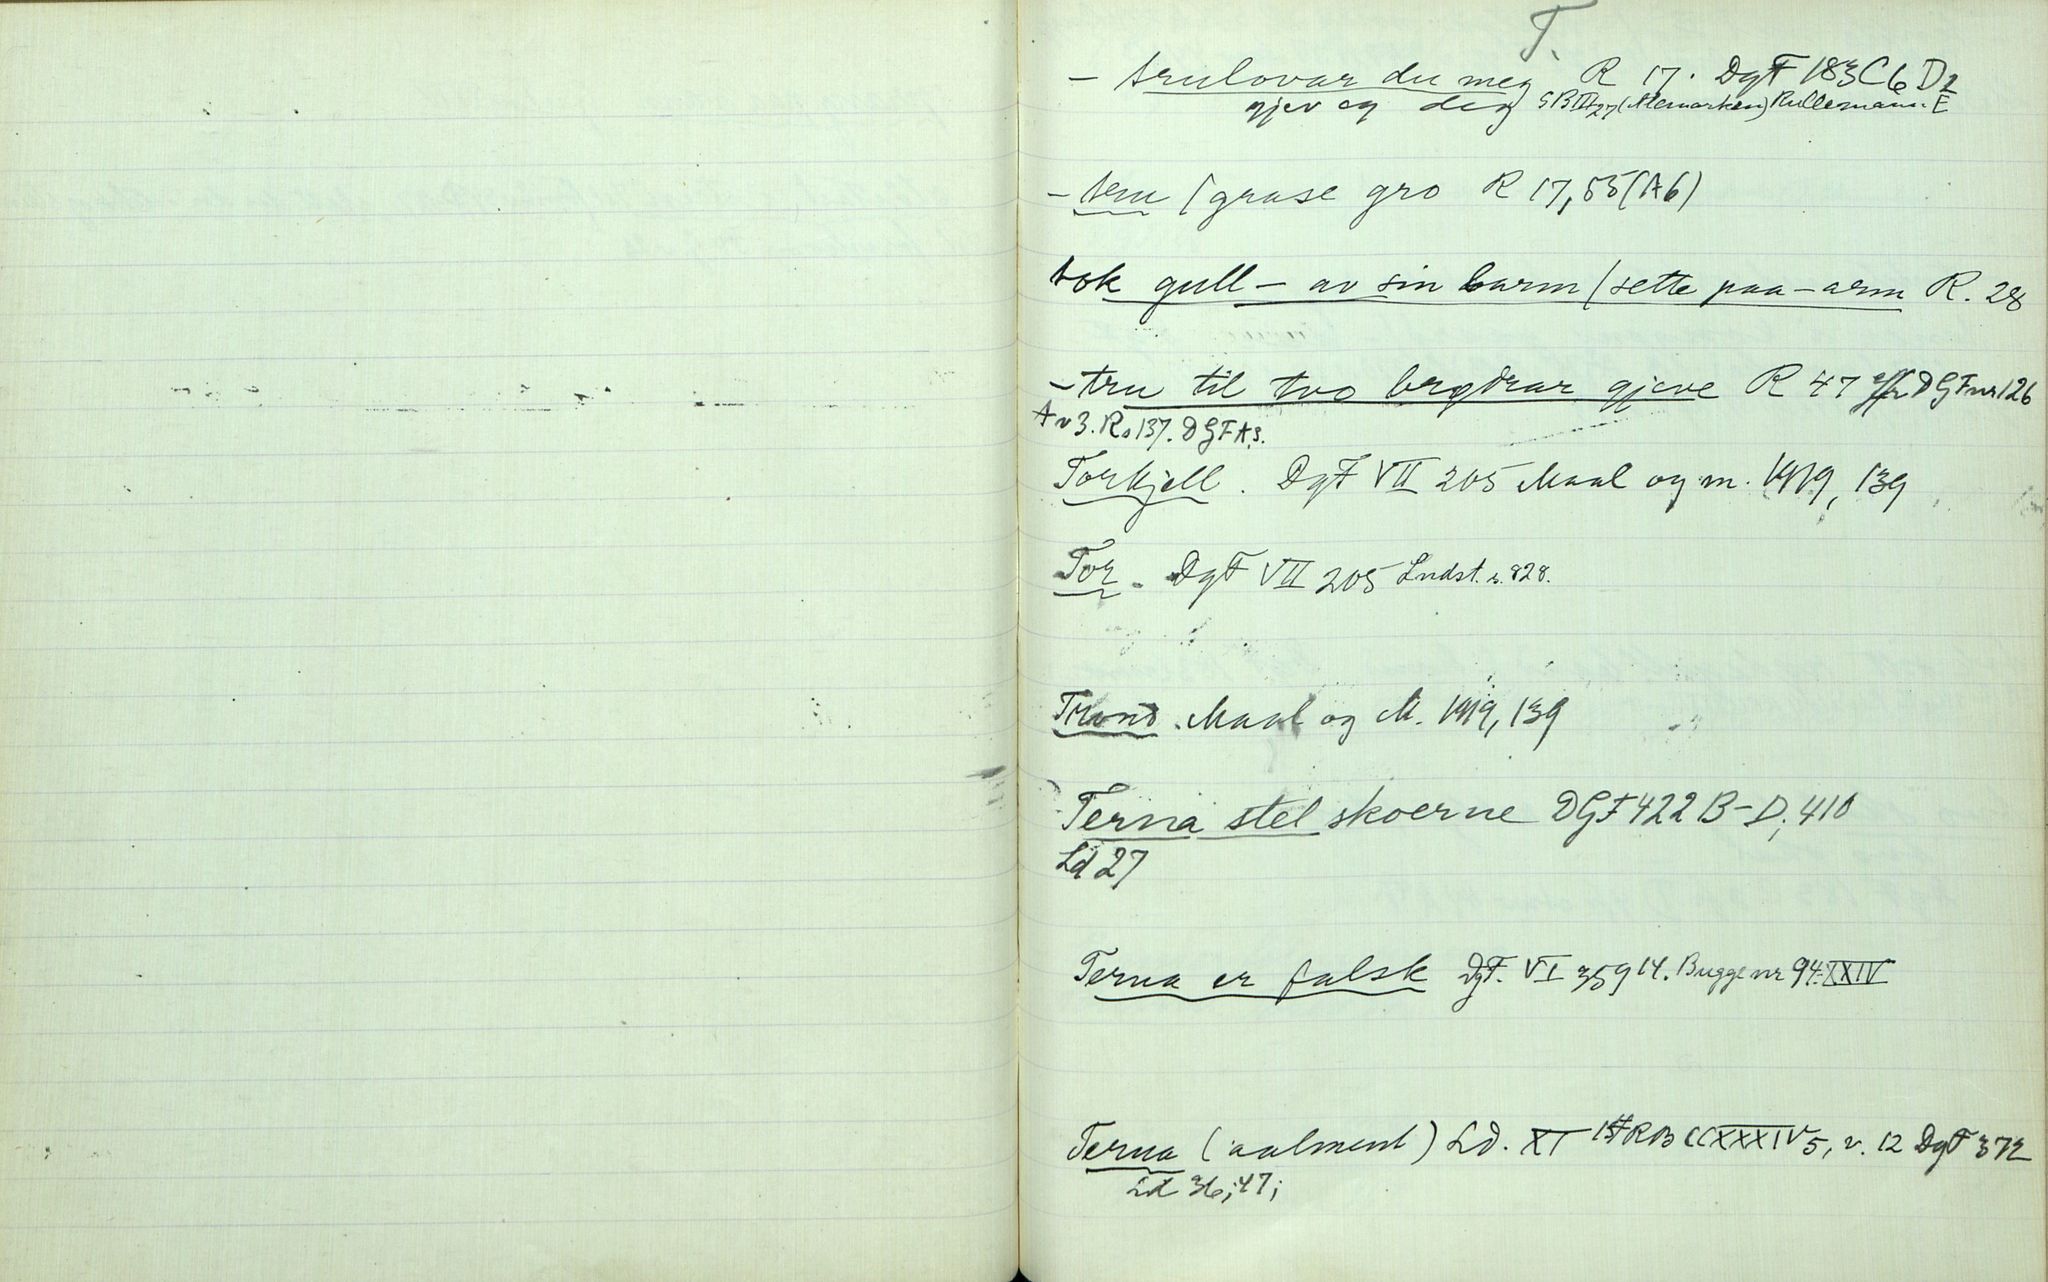 T.
- trulovar du meg R 17. DgF 183 C 6 D 2
gjev eg deg SB III 27 (Alemarken) Rullemann. E
- tru / grase gro R 17, 55 (A6)
tok gull - av sin barm / sette paa - arm R. 28
- tru til tvo brødrar gjeve R 47 jfr DGF nr 126
A v 3. R s 137. DGF A 3.
Torkjell. DgF VII 205 Maal og m. 1919, 139
Tor. DgF VII 205 Lndst. s. 828.
Trond. Maal og M. 1919, 139
Terna stel skoerne DGF 422 B-D, 410
Ld 27
Terna er falsk DgF. VI 359 14. Bugge nr 94. XXIV
Terna (aalment) Ld. XI RB CCXXXIV 5, v. 12 DgF 372
Ld 36; 47;